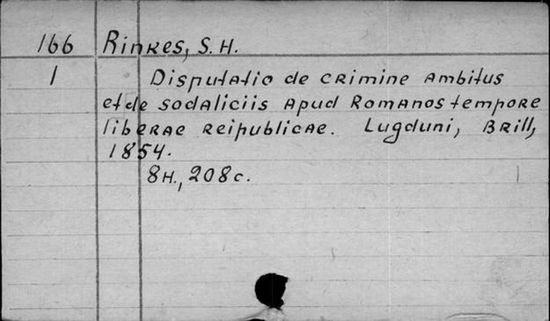 166 Rinkes, S. H.
1 Disputatio de crimine ambitus
et de sodaliciis apud Romanos tempore
liberae reipublicae. Lugduni, Brill,
1854.
8н., 208 с.